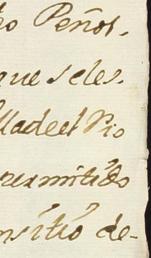 Peños.
que seles
lladeel Pio
permitido
sitio de-